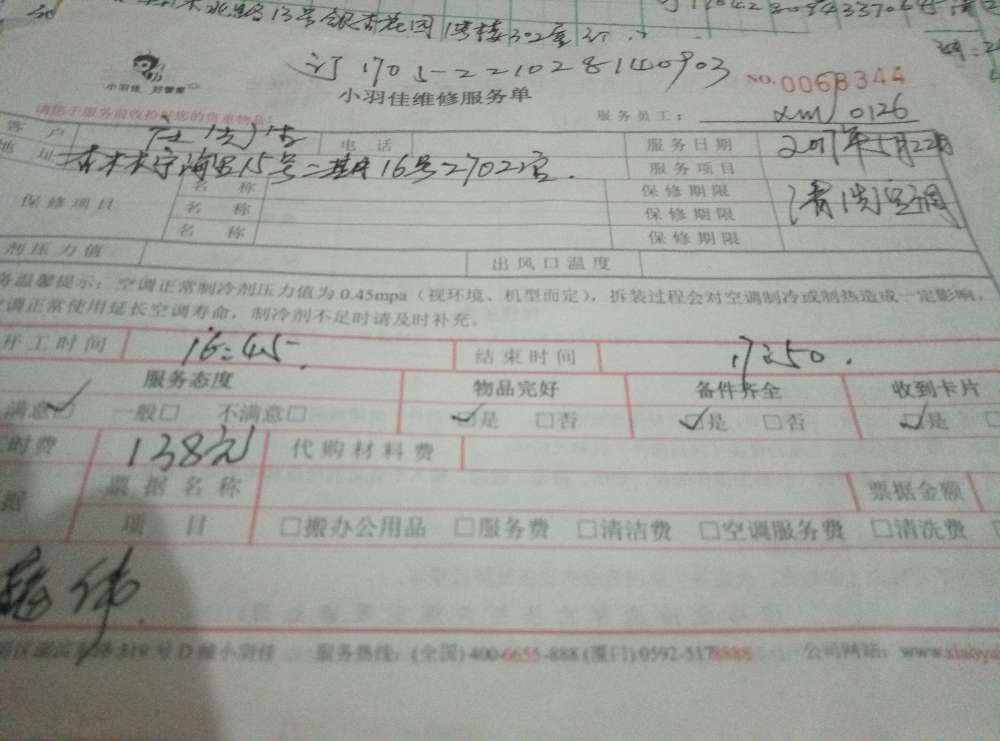 水路13号银杏花园1号楼302室
订1705-22102814090​3
小羽佳 好管家
NO.0068344
小羽佳维修服务单
服务员工: xmj 0126
请您于服务前收检好您的贵重物品!
客户 电话 服务日期 2017年5月22日
地址 15号二期16号2702室. 服务项目 清洗空调
保修项目 名称 保修期限
名称 保修期限
名称 保修期限
剂压力值 出风口温度
务温馨提示:空调正常制冷剂压力值为0.45mpa(视环境、机型而定),拆装过程会对空调制冷或制热造成一定影响。
调正常使用延长空调寿命,制冷剂不足时请及时补充。
开工时间 16:45 结束时间 17:50.
服务态度 物品完好 备件齐全 收到卡片
满意☑ 一般□ 不满意□ ☑是 □否 ☑是 □否 ☑是
时费 138元 代购材料费
据 票据名称 票据金额
项目 □搬办公用品 □服务费 □清洁费 □空调服务费 □清洗费
伟
319号D幢小羽佳 服务热线:(全国)400-6655-888(厦门)0592-5178888 公司网站:www.xiaoyu